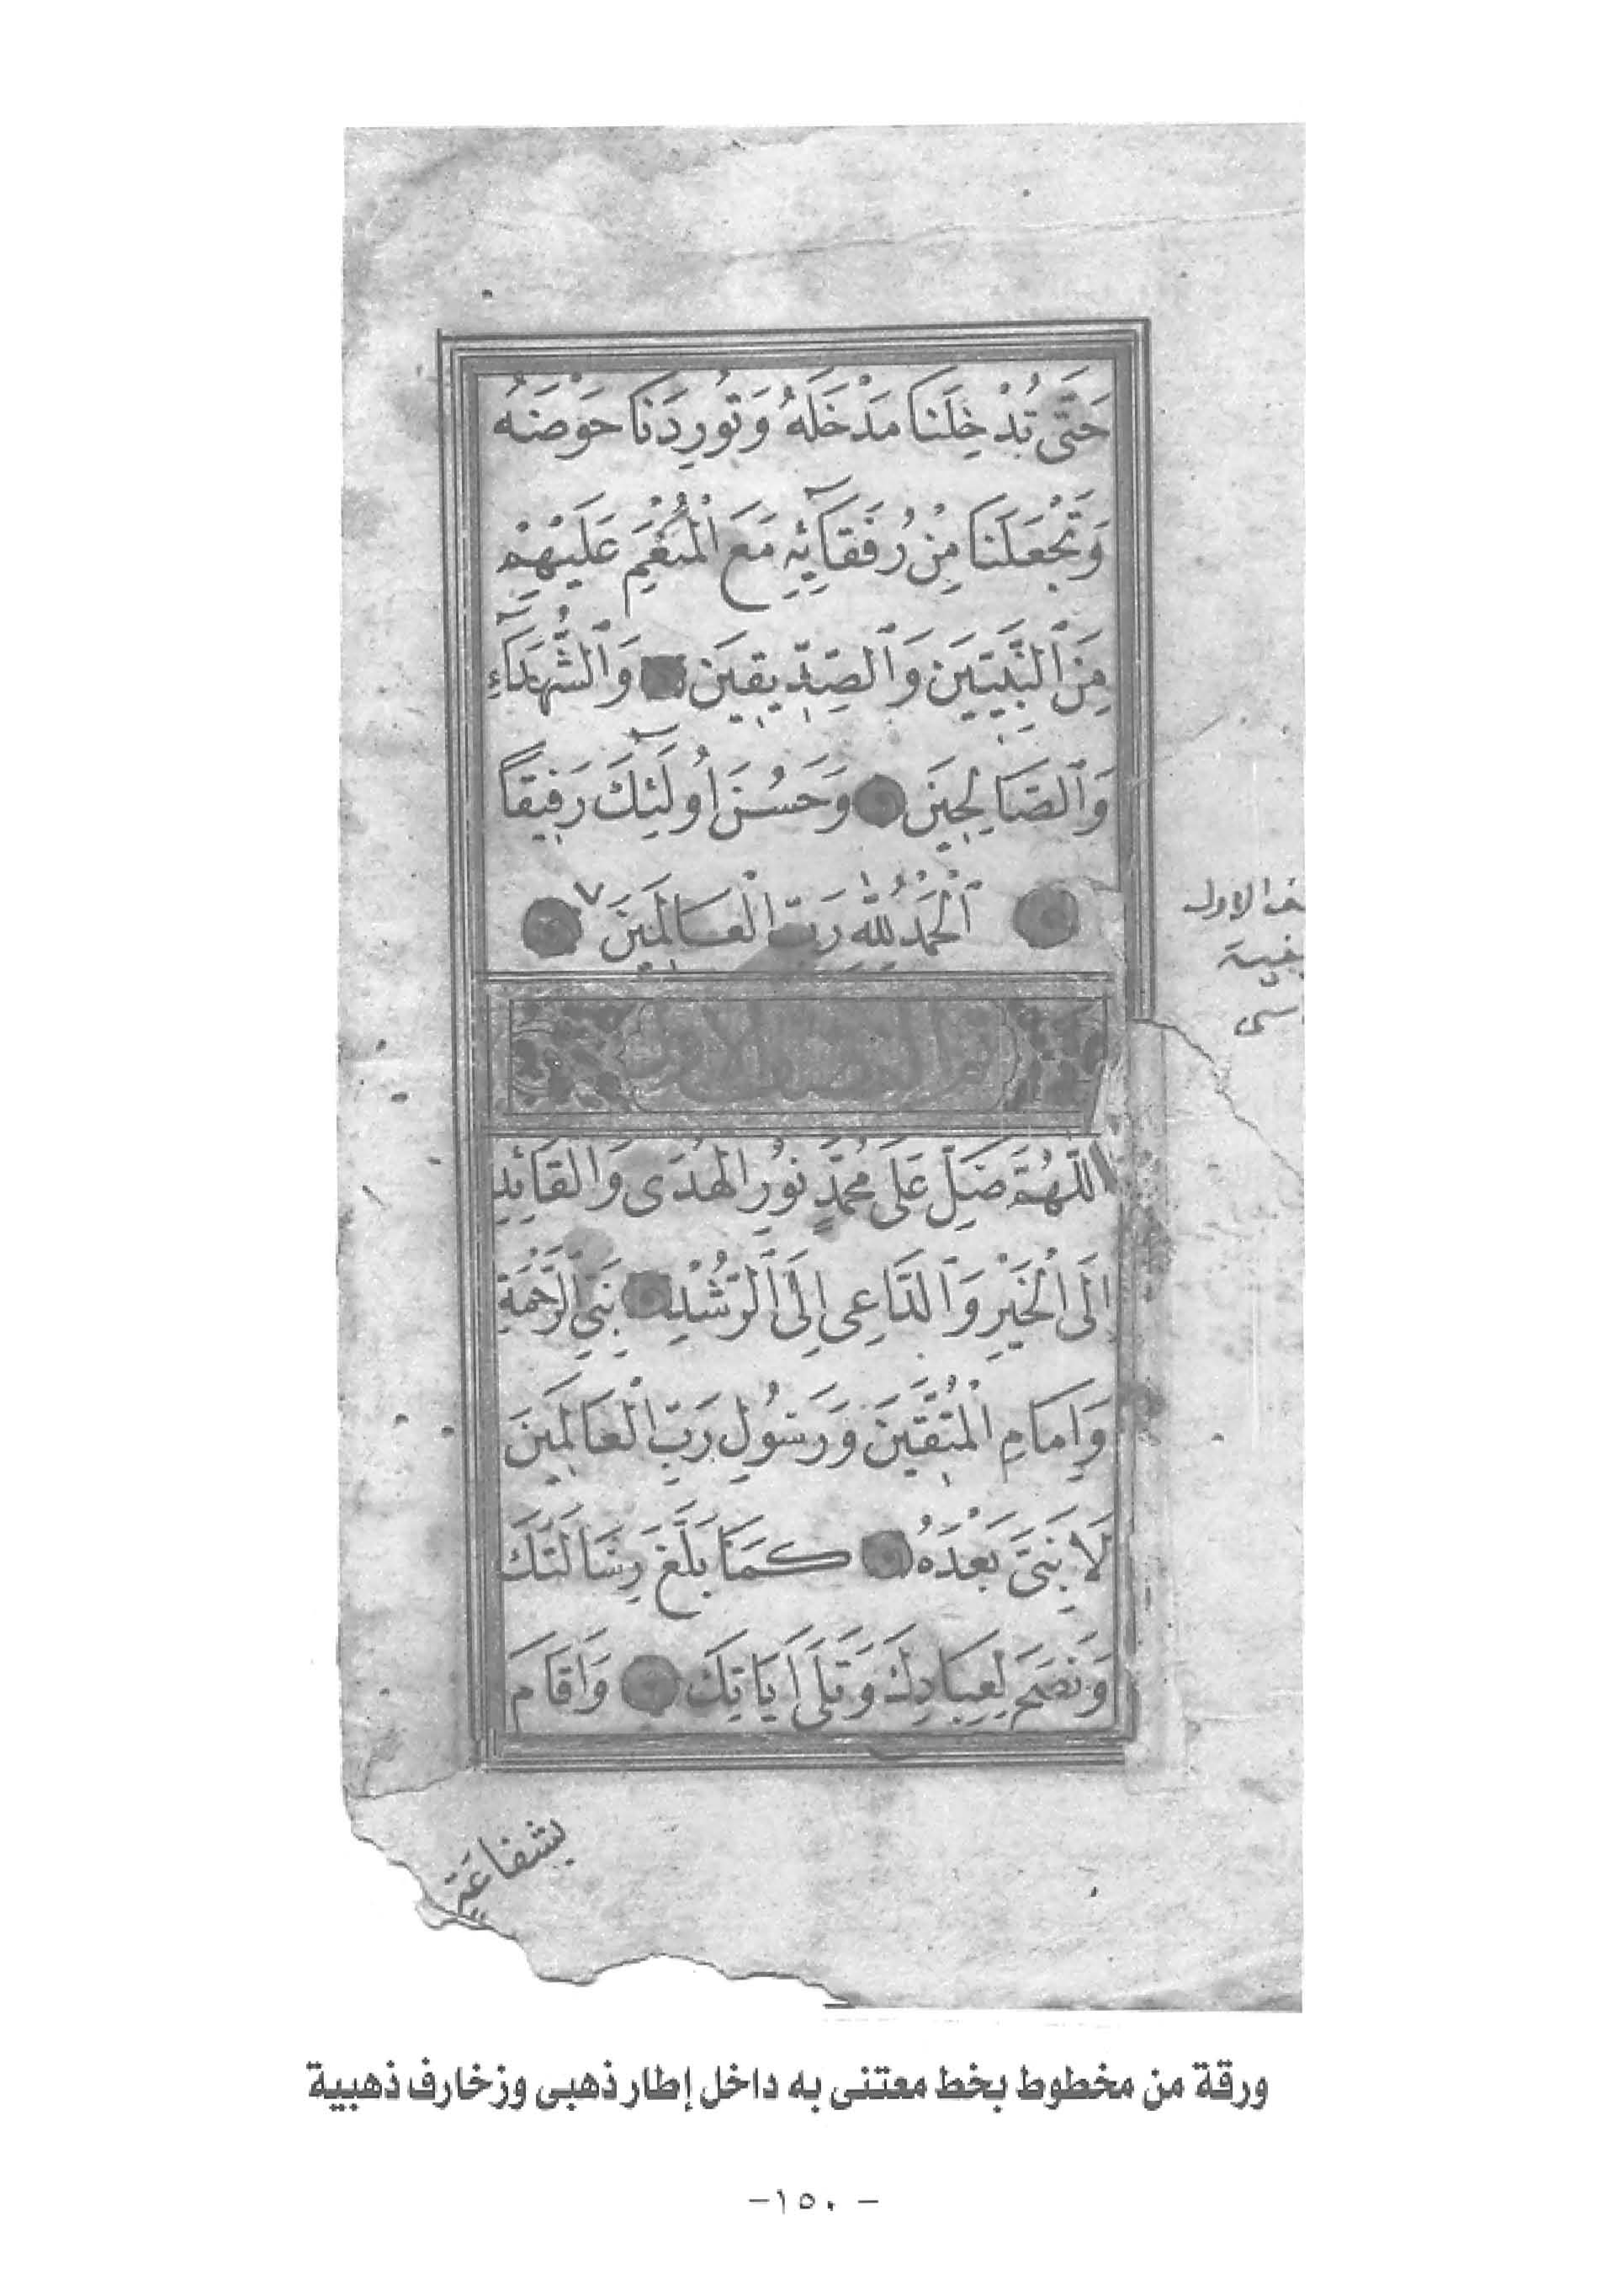 حَتَّى تُدْخِلَنَا مَدْخَلَهُ وَتُورِدَنَا حَوْضَهُ
وَتَجْعَلَنَا مِنْ رُفَقَائِهِ مَعَ الْمُنْعَمِ عَلَيْهِمْ
مِنَ ٱلنَّبِيِّينَ وَٱلصِّدِّيقِينَ وَٱلشُّهَدَآءِ
وَٱلصَّالِحِينَ وَحَسُنَ أُولَٰٓئِكَ رَفِيقًا
ٱلْحَمْدُ لِلّٰهِ رَبِّ الْعَالَمِينَ ٧
ف الاول
سى
اللّٰهُمَّ صَلِّ عَلَى مُحَمَّدٍ نُورِ الْهُدَى وَالْقَائِدِ
إِلَى الْخَيْرِ وَٱلدَّاعِى إِلَى ٱلرُّشْدِ نَبِيِّ الرَّحْمَةِ
وَإِمَامِ الْمُتَّقِينَ وَرَسُولِ رَبِّ الْعَالَمِينَ
لَا نَبِيَّ بَعْدَهُ كَمَا بَلَّغَ رِسَالَتَكَ
وَنَصَحَ لِعِبَادِكَ وَتَلَى أَيَاتِكَ وَاَقَامَ
بشفاعة
ورقة من مخطوط بخط معتنى به داخل إطار ذهبى وزخارف ذهبية
-١٥٠-